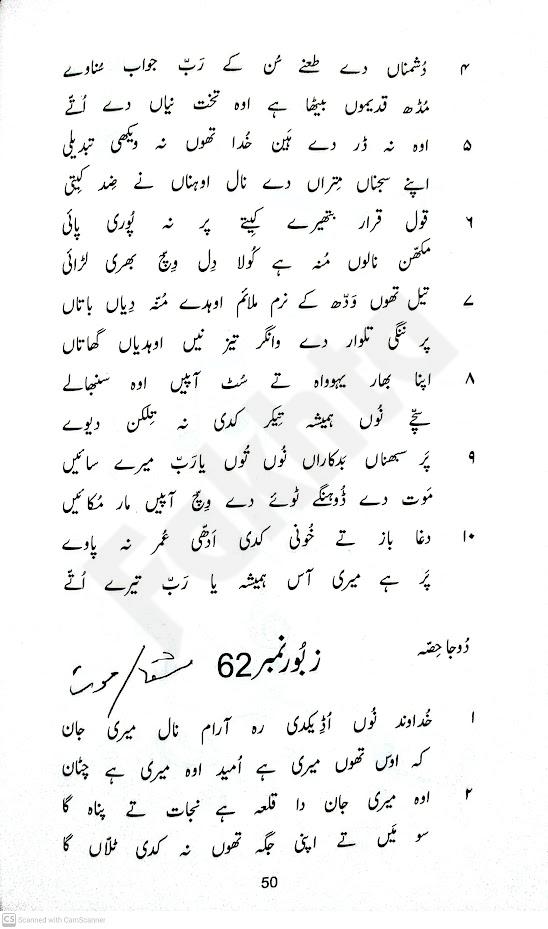 ۴ دُشمناں دے طعنے سُن کے رَبّ جواب سُناوے
مُڈھ قدیموں بیٹھا ہے اوہ تخت نیاں دے اُتّے
۵ اوہ نہ ڈر دے ہَین خُدا تھوں نہ ویکھی تبدیلی
اپنے سجناں مِتراں دے نال اوہناں نے ضِد کیتی
۶ قول قرار بتھیرے کیتے پر نہ پُوری پائی
مکھّن نالوں مُنہ ہے کُولا دِل وِچ بھری لڑائی
۷ تیل تھوں وَدّھ کے نرم ملائم اوہدے مُنّہ دِیاں باتاں
پر ننگی تلوار دے وانگر تیز نیں اوہدیاں گھاتاں
۸ اپنا بھار یہوواہ تے سُٹ آپیں اوہ سنبھالے
سچّے نُوں ہمیشہ تِیکر کدی نہ تِلکن دیوے
۹ پَر سبھناں بَدکاراں نُوں تُوں یارَبّ میرے سائیں
مَوت دے ڈُوہنگے ٹوئے دے وِچ آپیں مار مُکائیں
۱۰ دغا باز تے خُونی کدی اَدھّی عُمر نہ پاوے
پَر ہے میری آس ہمیشہ یا رَبّ تیرے اُتّے
دُوجا حِصّہ
زبُور نمبر 62
۱ خُداوند نُوں اُڈِیکدی رہ آرام نال میری جان
کہ اوس تھوں میری ہے اُمید اوہ میری ہے چٹان
۲ اوہ میری جان دا قلعہ ہے نجات تے پناہ گا
سو مَیں تے اپنی جگہ تھوں نہ کدی ٹلاّں گا
50
CS Scanned with CamScanner
Fakhta